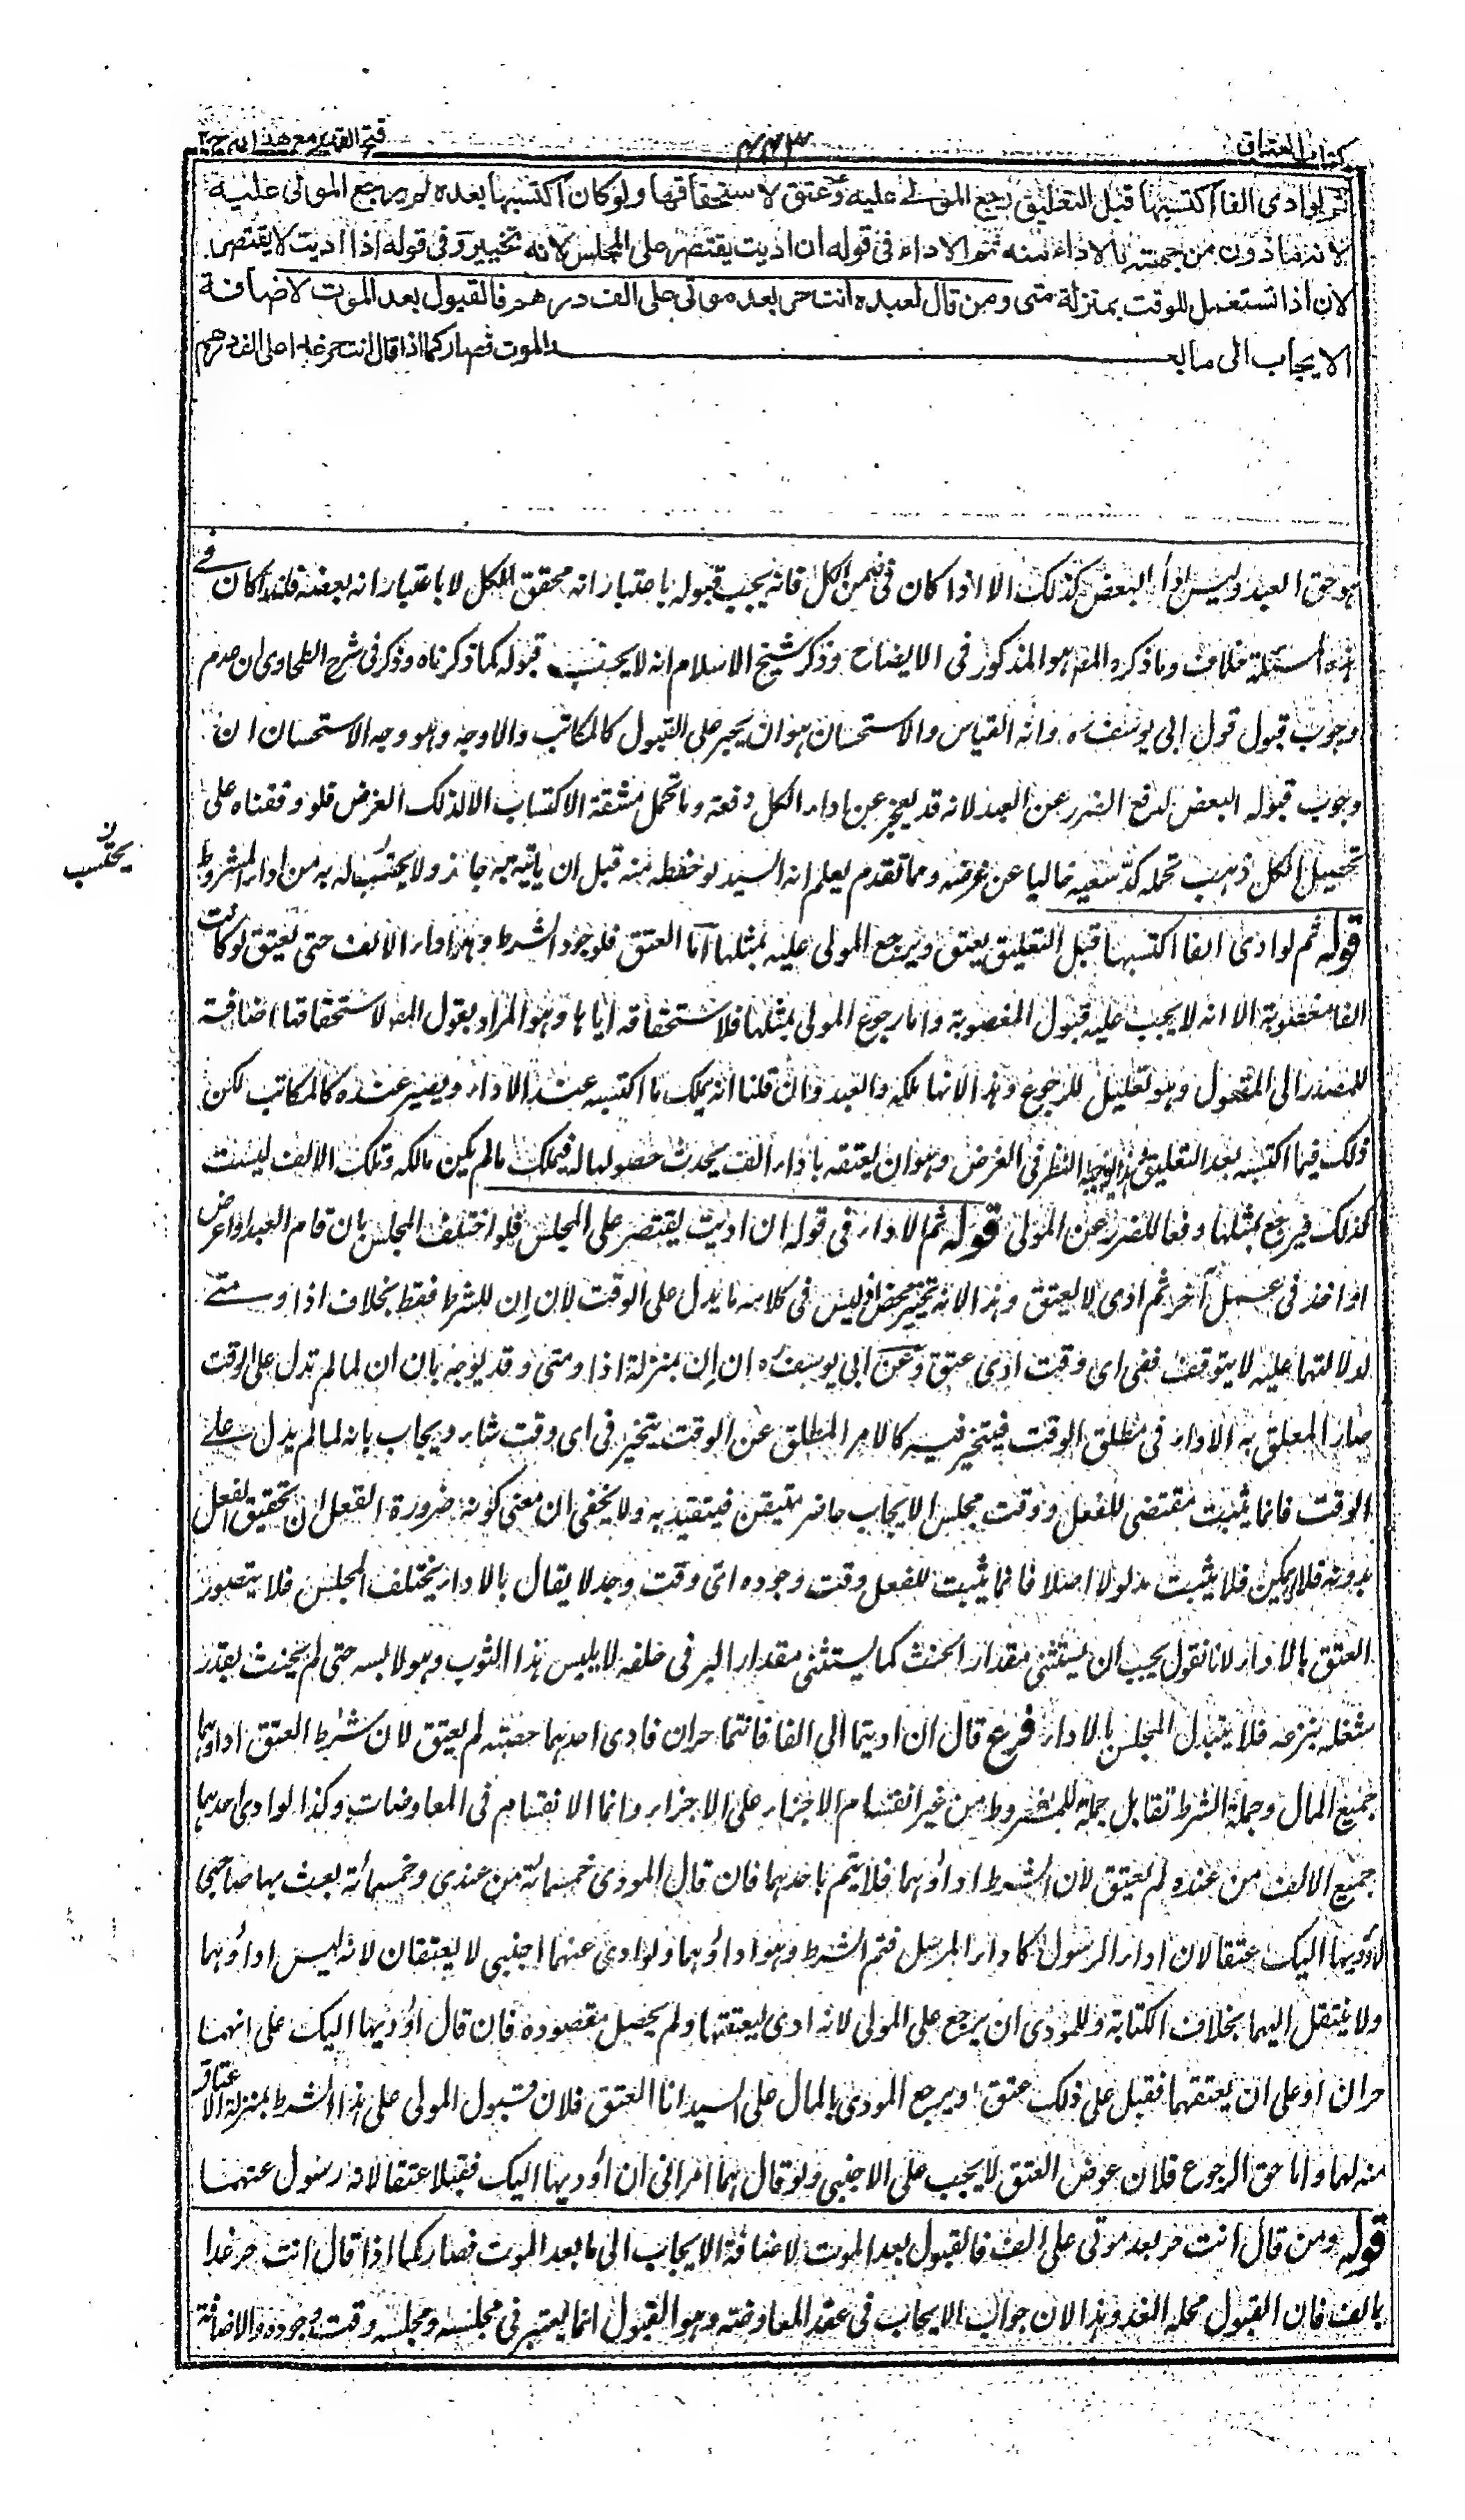 كتاب العتاق
٤٤٣
فتح القدير مع هدايه ج٢
ثم لو ادى الفا اكتسبها قبل التعليق رجع المولى عليه وعتق لاستحقاقها ولو كان اكتسبها بعده لم يرجع المولى عليه
لانه ماذون من جهته بالاداء منه ثم الاداء فى قوله ان اديت يقتصر على المجلس لانه تخيير وفى قوله اذا اديت لا يقتصر
لان اذا تستعمل للوقت بمنزلة متى ومن قال لعبده انت حر بعد موتى على الف درهم فالقبول بعد الموت لاضافة
الايجاب الى ما بعد الموت فصار كما اذا قال انت حر غدا على الف درهم
هو حق العبد وليس اداء البعض كذلك الا اذا كان فى ضمن الكل فانه يجب قبوله باعتبار انه محقق للكل لا باعتبار انه بعضه فلهذا كان فى
هذه المسئلة خلاف وما ذكره المصـ هو المذكور فى الايضاح وذكر شيخ الاسلام انه لا يجب قبوله كما ذكرناه وذكر فى شرح الطحاوى ان عدم
وجوب قبول قول ابى يوسف رہ وانه القياس والاستحسان هو ان يجبر على القبول كالمكاتب والاوجه وهو وجه الاستحسان ان
وجوب قبوله البعض لدفع الضرر عن العبد لانه قد يعجز عن اداء الكل دفعة وما تحمل مشقة الاكتساب الا لذلك الغرض فلو وقفناه على
تحصيل الكل ذهب تحمله كدّ سعيه خاليا عن غرضه ومما تقدم يعلم انه السيد لو خفطه منه قبل ان ياتيه به جاز ولا يحتسب له به من اداء المشروط
ن يحتسب
قوله ثم لو ادى الفا اكتسبها قبل التعليق يعتق ويرجع المولى عليه بمثلها اما العتق فلوجود الشرط وهو اداء الالف حتى يعتق لو كانت
الفا مغصوبة الا انه لا يجب عليه قبول المغصوبة واما رجوع المولى بمثلها فلاستحقاقه اياها وهو المراد بقول المصـ لاستحقاقها اضافة
للمصدر الى المفعول وهو تعليل للرجوع وهذا لانها ملكه والعبد وان قلنا انه يملك ما اكتسبه عند الاداء ويصير عنده كالمكاتب لكن
ذلك فيما اكتسبه بعد التعليق لهذا يوجبه النظر فى الغرض وهو ان يعتقه باداء الف يحدث حصولها له فيملك ما لم يكن مالكه وتلك الالف ليست
كذلك فيرجع بمثلها دفعا للضرر عن المولى قوله ثم الاداء فى قوله ان اديت يقتصر على المجلس فلو اختلف المجلس بان قام العبد او اعرض
او اخذ فى عمل آخر ثم ادى لا يعتق وهذا لانه تخيير محض اذ ليس فى كلامه ما يدل على الوقت لان اِن للشرط فقط بخلاف اذا ومتى
لدلالتهما عليه لا يتوقف ففى اى وقت ادى عتق وعن ابى يوسف رہ ان اِن بمنزلة اذا ومتى وقد يوجه بان ان لما لم تدل على الوقت
صار المعلق به الاداء فى مطلق الوقت فيتخير فيه كالامر المطلق عن الوقت يتخير فى اى وقت شاء ويجاب بانه لما لم يدل على
الوقت فانما يثبت مقتضى للفعل ووقت مجلس الايجاب حاضر متيقن فيتقيد به ولا يخفى ان معنى كونه ضرورة الفعل ان تحقيق الفعل
بدونه فلا يمكن فلا يثبت مدلولا اصلا فانما يثبت للفعل وقت وجوده اى وقت وجد لا يقال بالاداء يختلف المجلس فلا يتصور
العتق بالاداء لانا نقول يجب ان يستثنى مقدار الحنث كما يستثنى مقدار البر فى حلفه لا يلبس هذا الثوب وهو لابسه حتى لم يحنث بقدر
شغله بنزعه فلا يتبدل المجلس بالاداء فرع قال ان اديتما الى الفا فانتما حران فادى احدهما حصته لم يعتق لان شرط العتق اداؤهما
جميع المال وجملة الشرط تقابل جملة المشروط من غير انقسام الاجزاء على الاجزاء وانما الانقسام فى المعاوضات وكذا لو ادى احدهما
جميع الالف من عنده لم يعتق لان الشرط اداؤهما فلا يتم باحدهما فان قال المودى خمسمائة من عندى وخمسمائة بعث بها صاحبى
لاؤديها اليك عتقا لان اداء الرسول كاداء المرسل فتم الشرط وهو اداؤهما ولو ادى عنهما اجنبى لا يعتقان لانه ليس اداؤهما
ولا ينتقل اليهما بخلاف الكتابة وللمودى ان يرجع على المولى لانه ادى ليعتقها ولم يحصل مقصوده فان قال اؤديها اليك على انهما
حران او على ان يعتقهما فقبل على ذلك عتق ويرجع المودى بالمال على السيد اما العتق فلان قبول المولى على هذا الشرط بمنزلة الاعتاق
منه لهما واما حق الرجوع فلان عوض العتق لا يجب على الاجنبى ولو قال هما امرانى ان اؤديها اليك فقبلا عتقا لانه رسول عنهما
قوله ومن قال انت حر بعد موتى على الف فالقبول بعد الموت لاضافة الايجاب الى ما بعد الموت فصار كما اذا قال انت حر غدا
بالف فان القبول محله الغد وهذا لان جواب الايجاب فى عقد المعاوضة وهو القبول انما يعتبر فى مجلسه ومجلسه وقت وجوده والاضافة